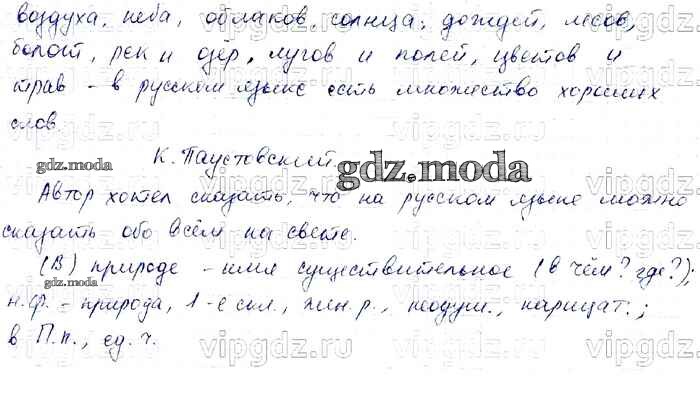 воздуха, неба, облаков, солнца, дождей, лесов,
болот, рек и озёр, лугов и полей, цветов и
трав - в русском языке есть множество хороших
слов.
К. Паустовский.
gdz.moda
gdz.moda
Автор хотел сказать, что на русском языке можно
сказать обо всём на свете.
(В) природе - имя существительное (в чём? где?);
н.ф. - природа, 1-е скл., жен. р., неодуш., нарицат.;
в П.п., ед. ч.
vipgdz.ru